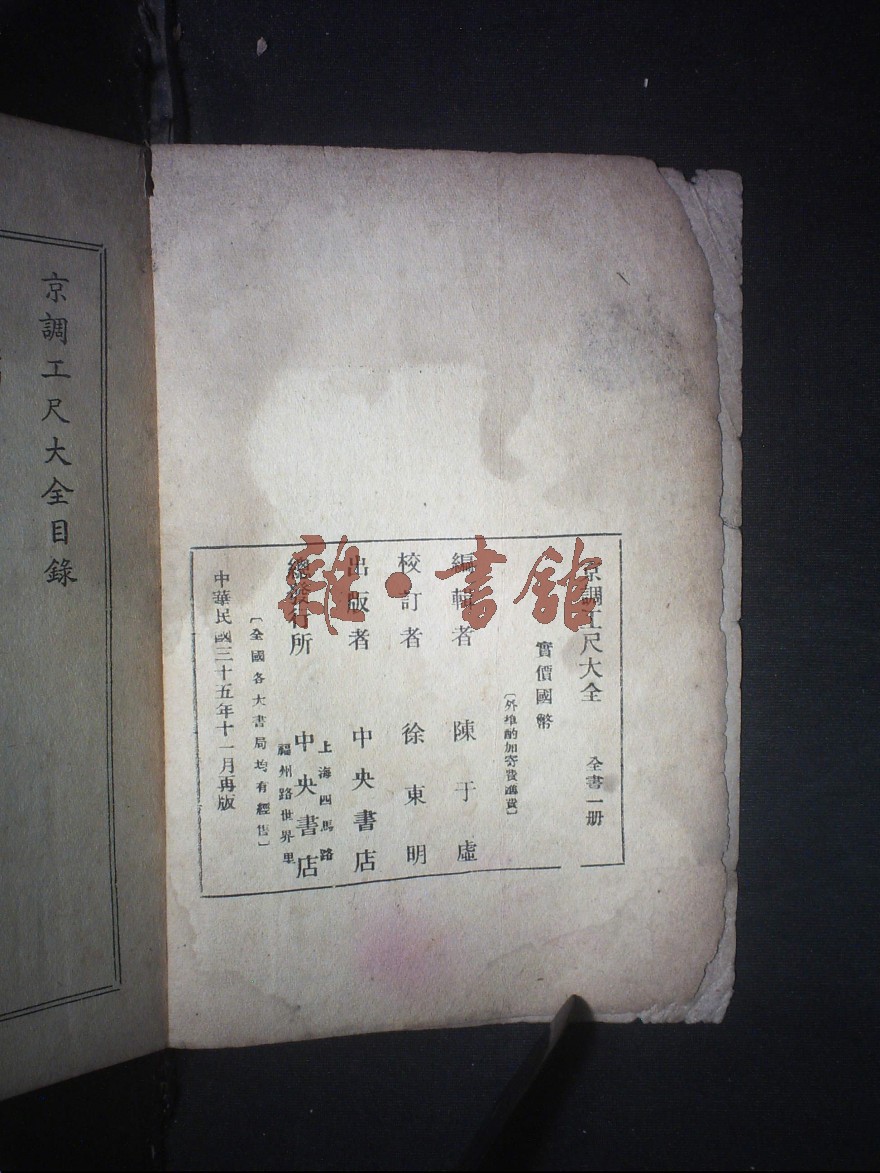 京調工尺大全 全書一册
實價國幣
〔外埠酌加寄費滙費〕
編輯者 陳于虛
校訂者 徐東明
出版者 中央書店
總發行所 中央書店
上海四馬路
福州路世界里
〔全國各大書局均有經售〕
中華民國三十五年十一月再版
京調工尺大全目錄
雜·書館